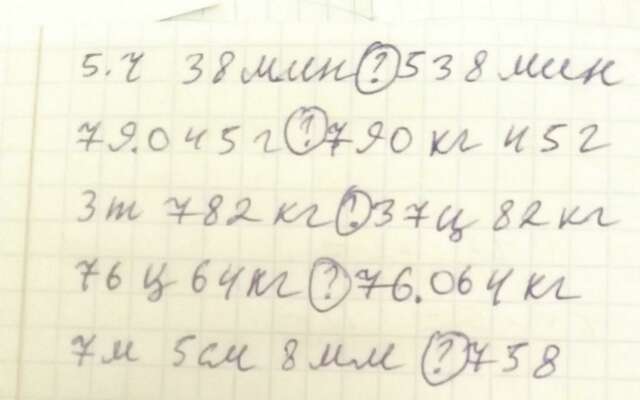 5.ч 38мин ? 538мин
79.045г ? 790 кг 45г
3т 782кг ? 37ц 82кг
76ц 64кг ? 76.064кг
7м 5см 8мм ? 758